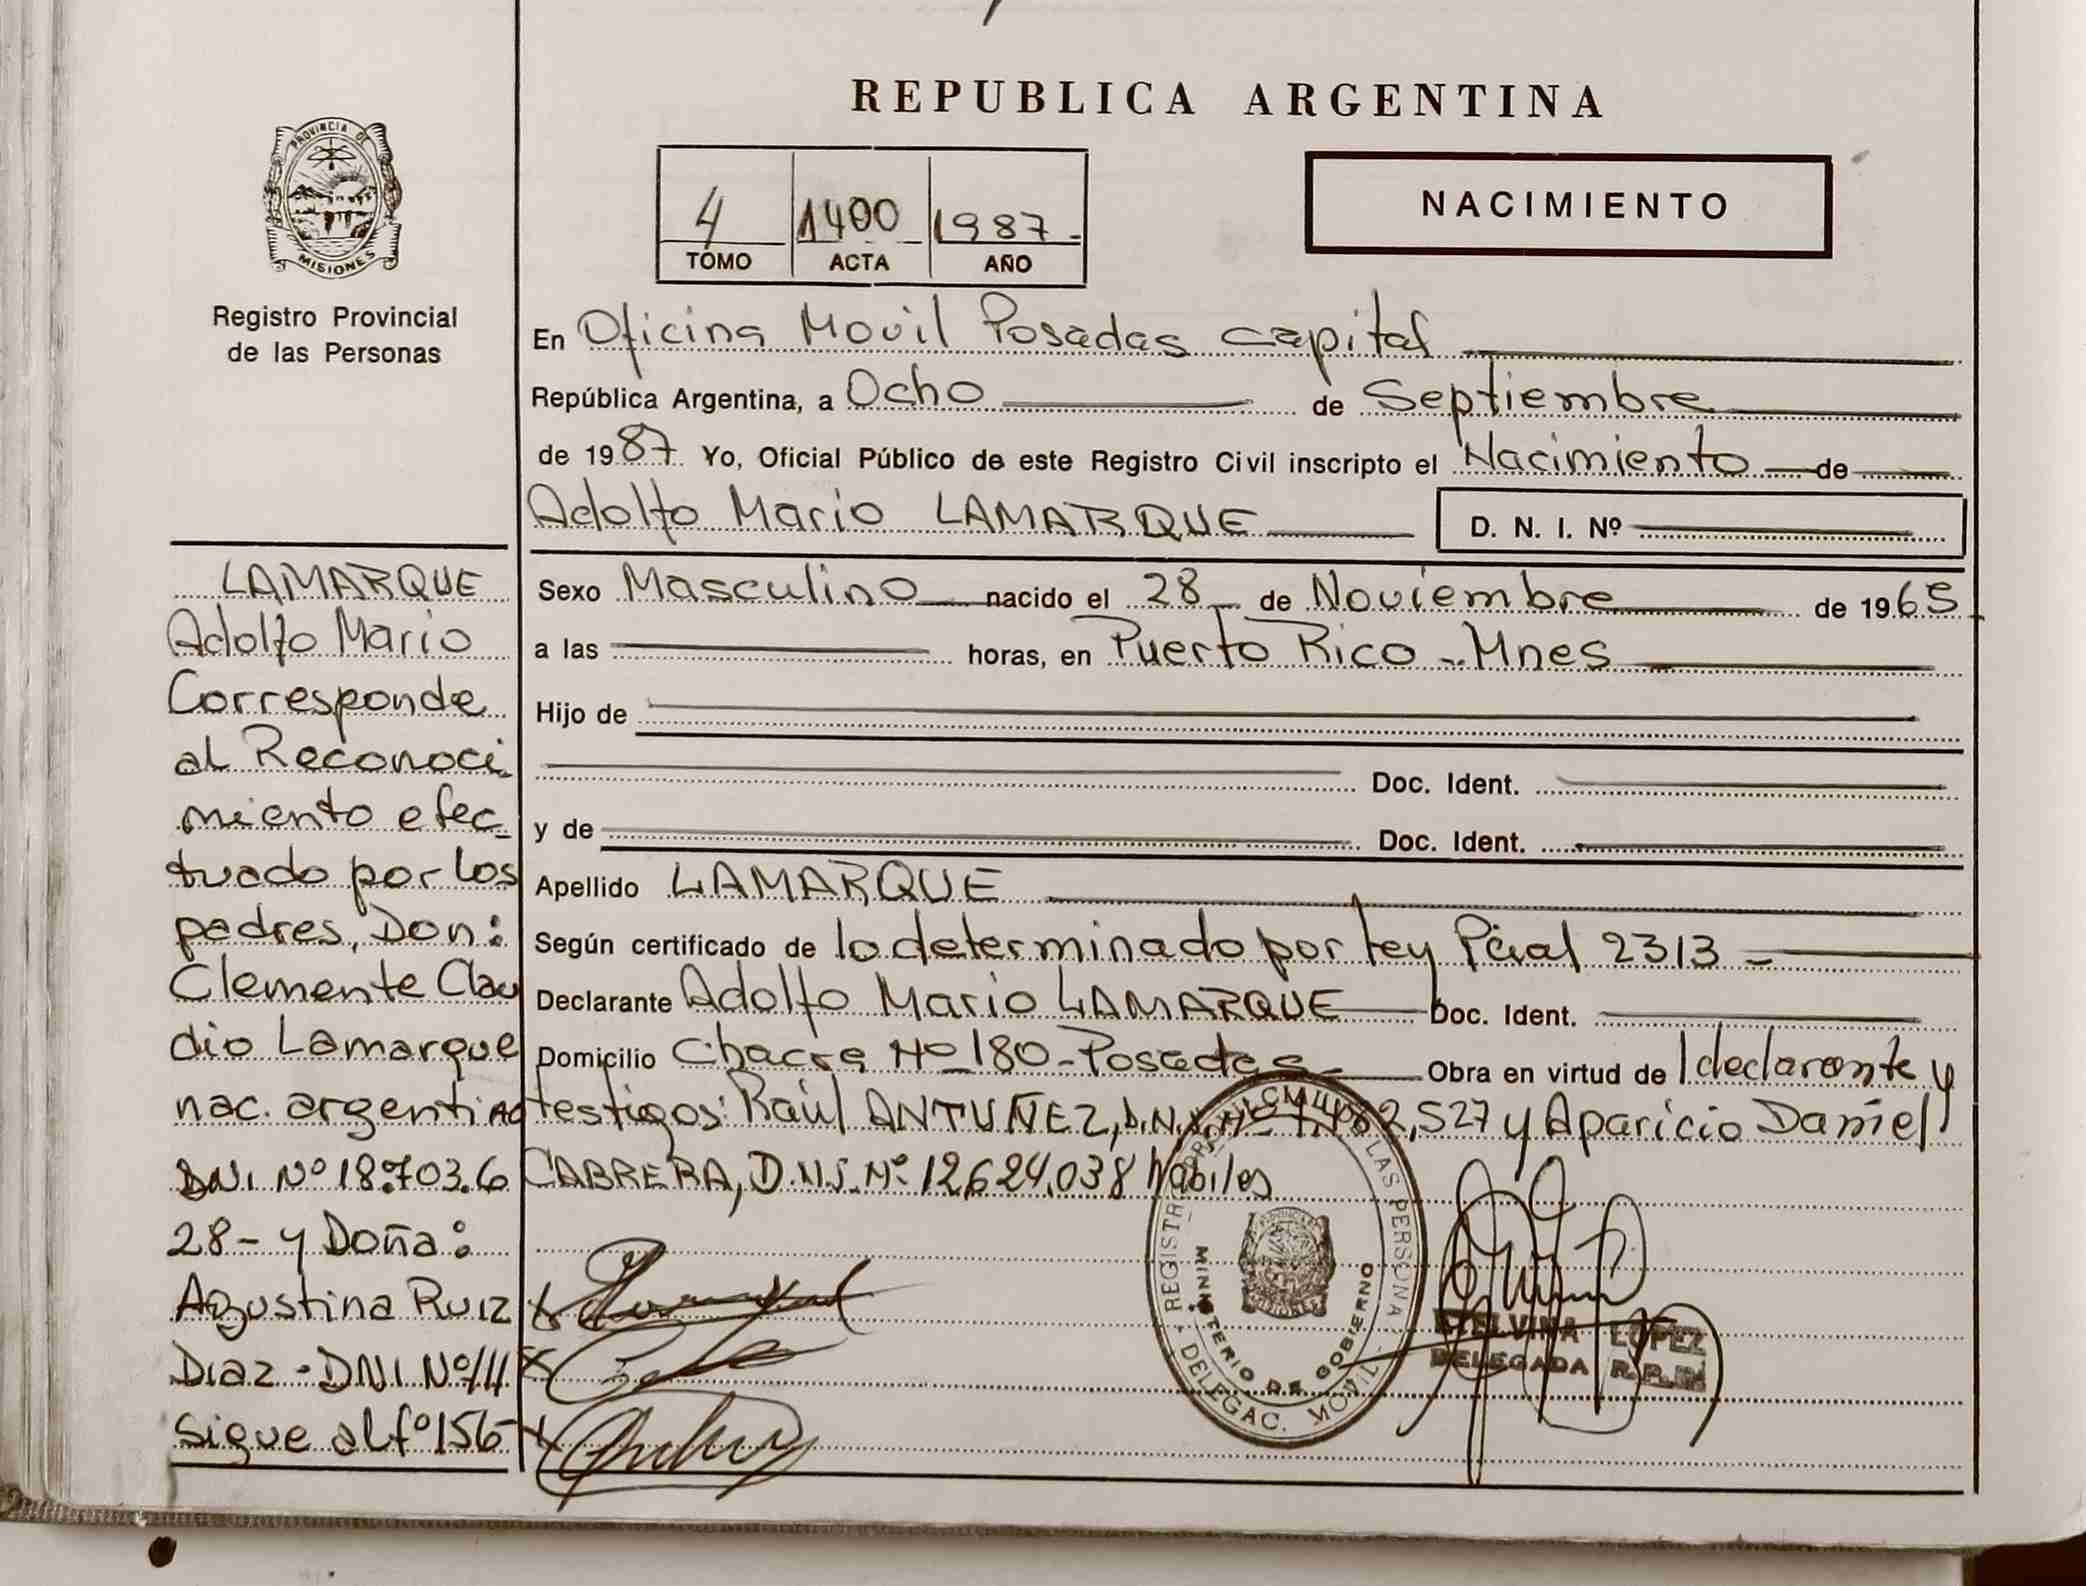 REPUBLICA ARGENTINA
PROVINCIA DE
MISIONES
Registro Provincial
de las Personas
4 1400 1987
TOMO ACTA AÑO
NACIMIENTO
En Oficina Movil Posadas Capital
República Argentina, a Ocho de Septiembre
de 1987. Yo, Oficial Público de este Registro Civil inscripto el Nacimiento de
Adolfo Mario LAMARQUE D. N. I. Nº
Sexo Masculino nacido el 28 de Noviembre de 19
a las horas, en Puerto Rico - Mnes
Hijo de
Doc. Ident.
y de Doc. Ident.
Apellido LAMARQUE
Según certificado de lo determinado por Ley Pcial 2313 -
Declarante Adolfo Mario LAMARQUE Doc. Ident.
Domicilio Chacra Nº 180 - Posadas - Obra en virtud de l declarante y
testigos: Raúl ANTUÑEZ, D.N.I. Nº y Aparicio Daniel
CABRERA, D.N.I. Nº 12,624,038 habiles
LAMARQUE
Adolfo Mario
Corresponde
al Reconoci
miento efec-
tuado por los
padres, Don:
Clemente Clau
dio Lamarque
nac. argentino
DNI Nº 18.703.6
28 - y Doña:
Agustina Ruiz
Diaz - DNI Nº
Sigue al fº 156
REGISTRO LAS PERSONAS
MINISTERIO DE GOBIERNO
MISIONES
DELEGAC. MOVIL
ETELVINA LOPEZ
DELEGADA